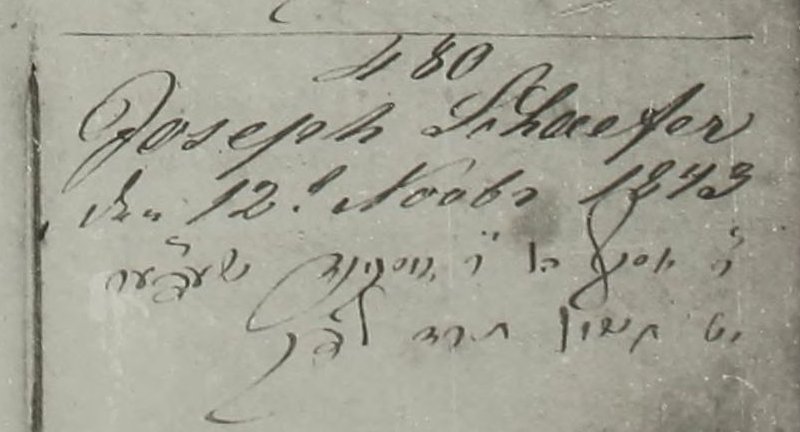 480
Joseph Schaefer
den 12t Novbr 1843
ר' יוסף בן ר' שעפער
יט חשון תרד לפ"ק